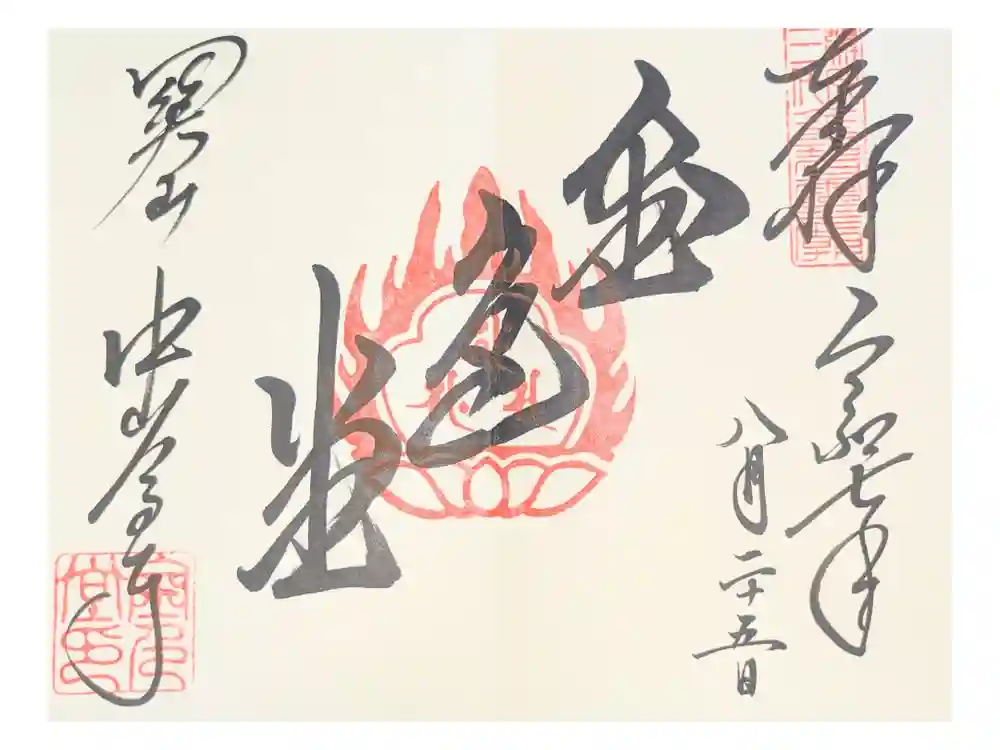 奉拝
令和七年
八月二十五日
金色堂
關山
中尊寺